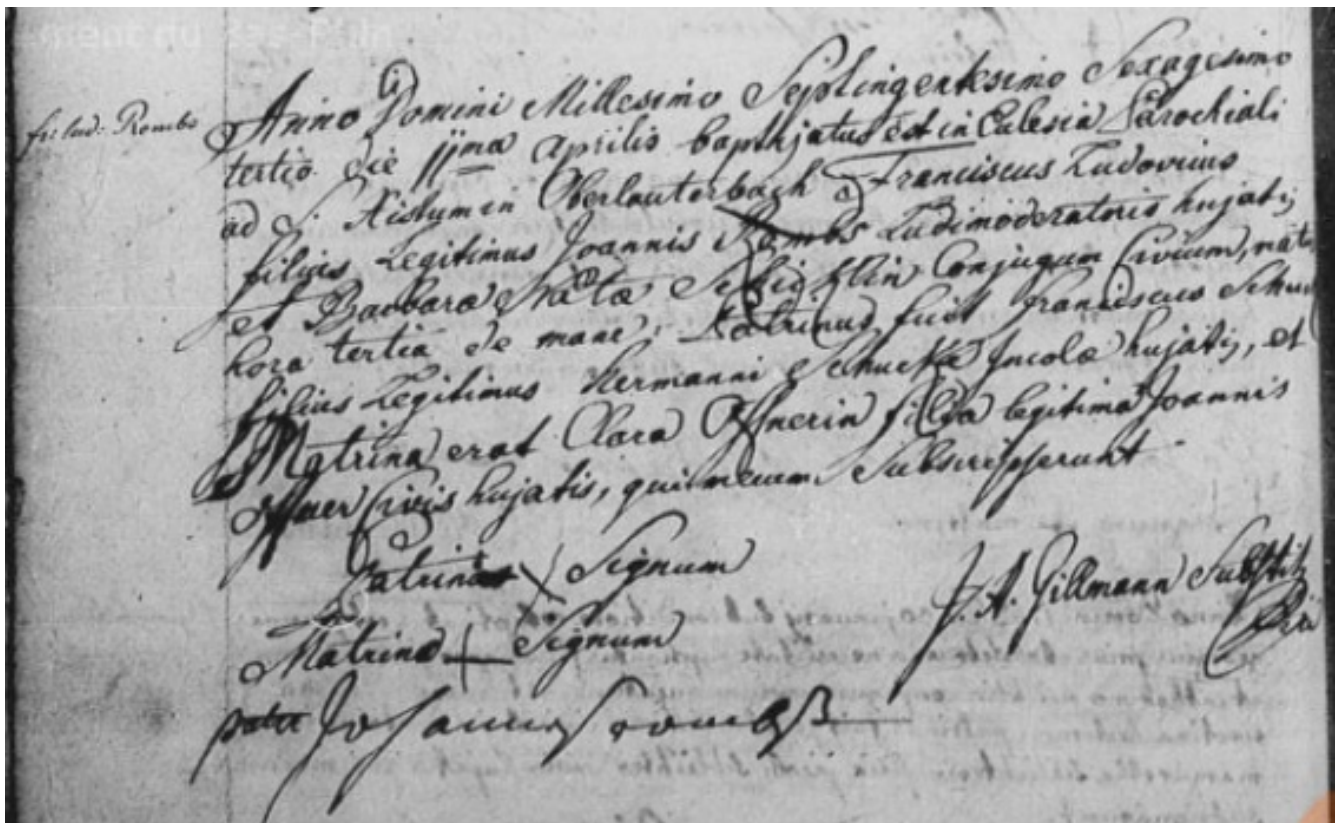 fr: lud: Rombs
Anno Domini Millesimo Septingentesimo Sexagesimo
tertio die jjma Aprilis baptizatus est in Eclesia Parochiali
ad S. Xistum in Oberlauterbach Franciscus Ludovicus
filius Legitimus Joannis Rombs Ludimoderatoris hujatis
et Barbara Nata Conjugum Civium, nat
hora tertia de mane, Patrinus fuit Franciscus
filius Legitimus Hermanni Incolæ hujatis, et
Matrina erat Clara Offnerin filia legitima Joannis
Offner Civis hujatis, qui mecum Subscripserunt
Patrinus Signum
Matrina + Signum
J. A. Gillmann
pater Johannes